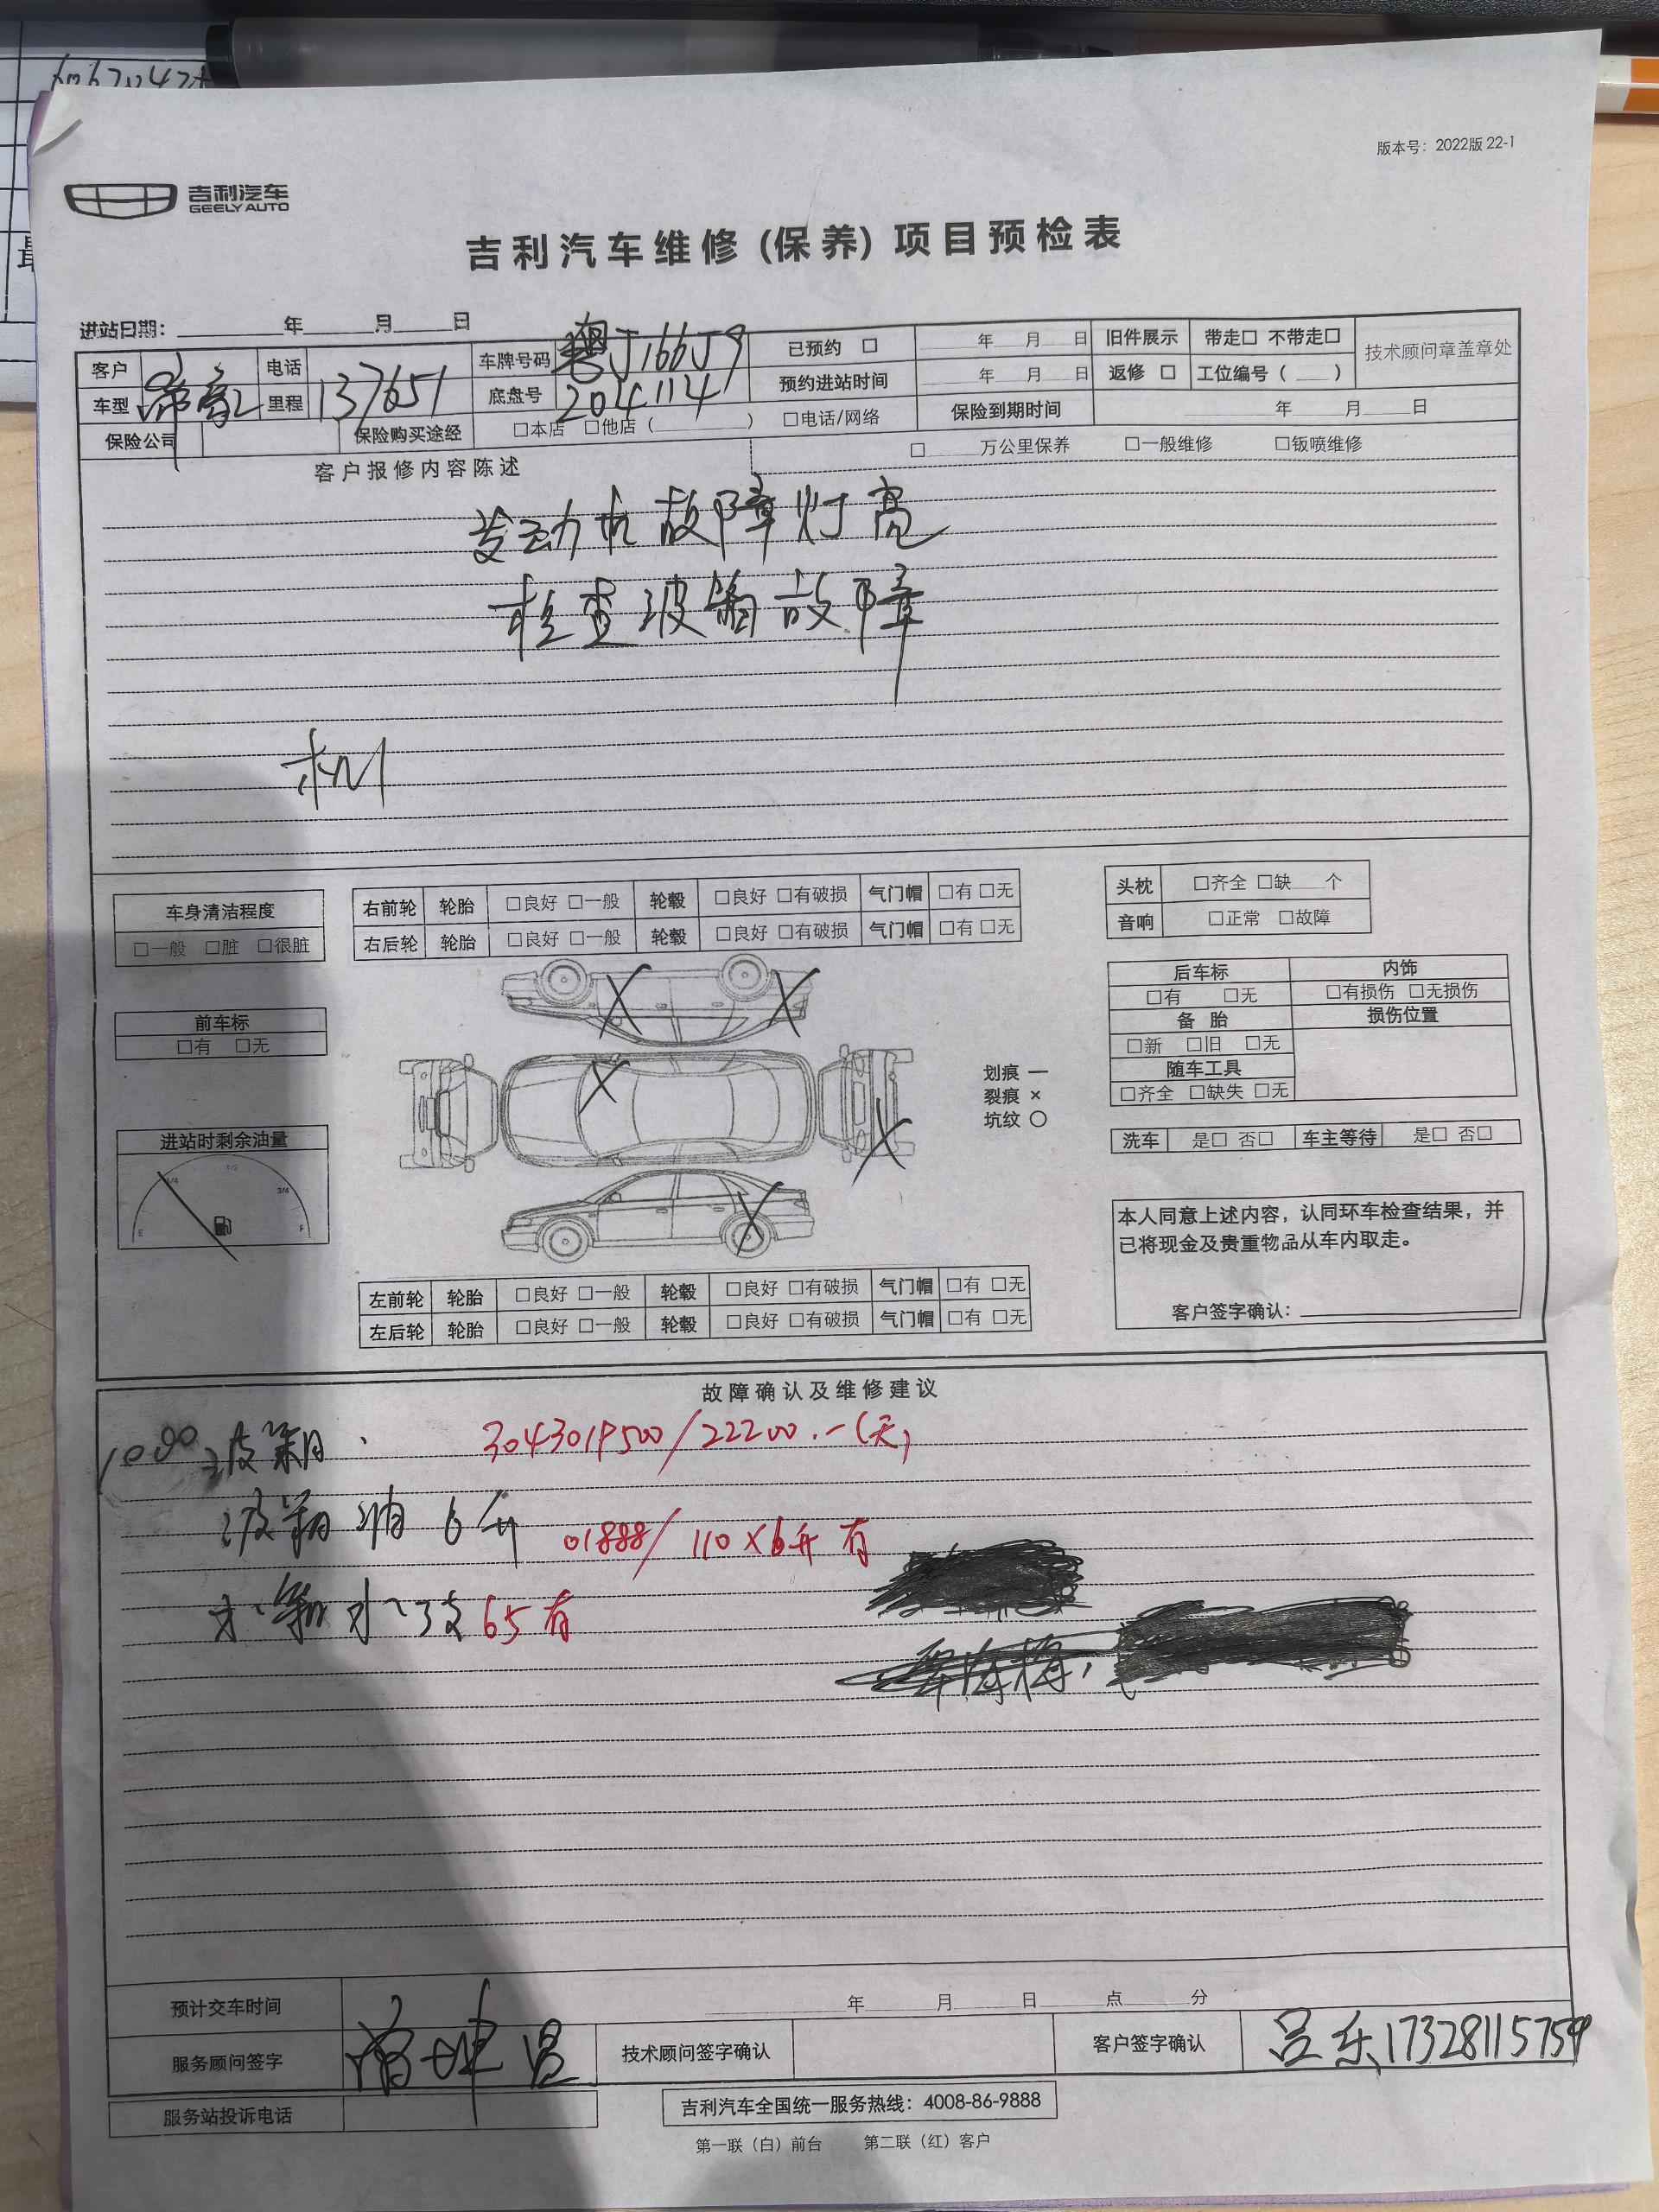 版本号：2022版 22-1
吉利汽车
GEELY AUTO
吉利汽车维修(保养)项目预检表
进站日期： 年 月 日
客户 电话 车牌号码 粤J166J9 已预约 □ 年 月 日 旧件展示 带走□ 不带走□ 技术顾问章盖章处
车型 帝豪 里程 137651 底盘号 204114 预约进站时间 年 月 日 返修 □ 工位编号（ ）
□电话/网络 保险到期时间 年 月 日
保险公司 保险购买途经 □本店 □他店（ ）
□ 万公里保养 □一般维修 □钣喷维修
客户报修内容陈述
发动机故障灯亮
检查波箱故障
车身清洁程度
□一般 □脏 □很脏
右前轮 轮胎 □良好 □一般 轮毂 □良好 □有破损 气门帽 □有 □无
右后轮 轮胎 □良好 □一般 轮毂 □良好 □有破损 气门帽 □有 □无
头枕 □齐全 □缺 个
音响 □正常 □故障
前车标
□有 □无
后车标 内饰
□有 □无 □有损伤 □无损伤
备 胎 损伤位置
□新 □旧 □无
随车工具
□齐全 □缺失 □无
划痕 —
裂痕 ×
坑纹 ○
洗车 是□ 否□ 车主等待 是□ 否□
进站时剩余油量
E 1/4 1/2 3/4 F
本人同意上述内容，认同环车检查结果，并
已将现金及贵重物品从车内取走。
客户签字确认：
左前轮 轮胎 □良好 □一般 轮毂 □良好 □有破损 气门帽 □有 □无
左后轮 轮胎 □良好 □一般 轮毂 □良好 □有破损 气门帽 □有 □无
故障确认及维修建议
波箱 3043019500/22200.-(天)
波箱油 6升 01888/110×6升 有
65 有
预计交车时间 年 月 日 点 分
服务顾问签字 技术顾问签字确认 客户签字确认 吕东 17328115759
服务站投诉电话
吉利汽车全国统一服务热线：4008-86-9888
第一联（白）前台 第二联（红）客户